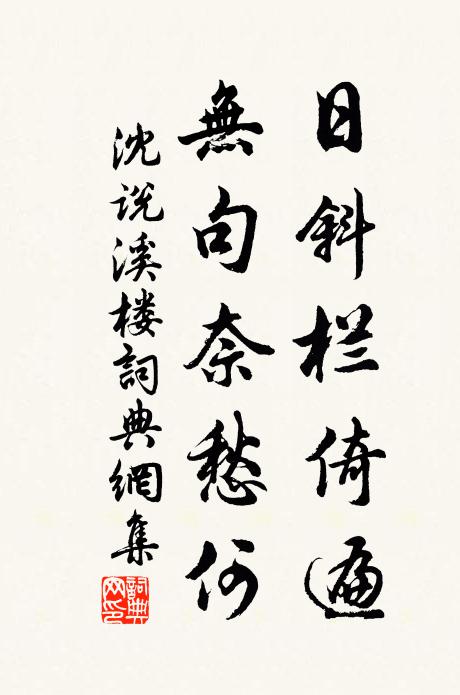 日斜栏倚遍
無句奈愁何
沈说溪楼詞典網集
詞典网印